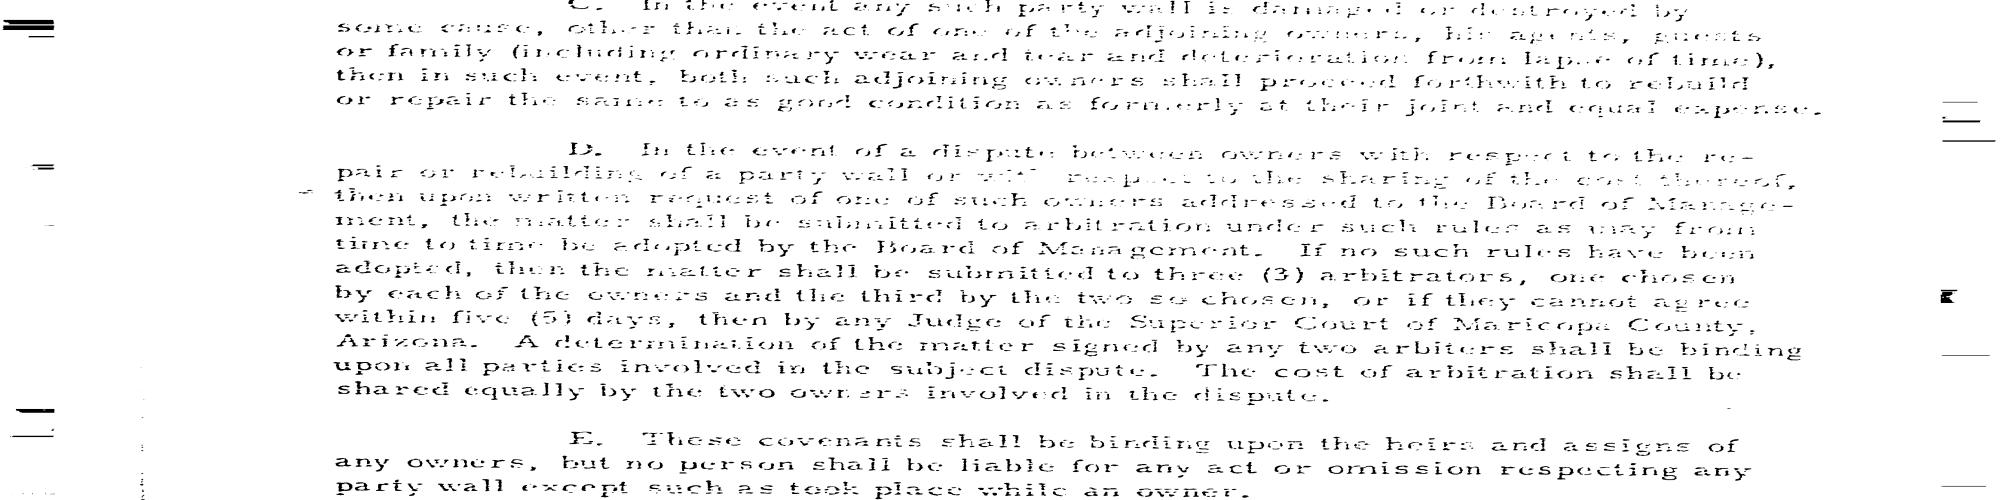 C. In the event any such party wall is damaged or destroyed by
some cause, other than the act of one of the adjoining owners, his agents, guests
or family (including ordinary wear and tear and deterioration from lapse of time),
then in such event, both such adjoining owners shall proceed forthwith to rebuild
or repair the same to as good condition as formerly at their joint and equal expense.
D. In the event of a dispute between owners with respect to the re-
pair or rebuilding of a party wall or with respect to the sharing of the cost thereof,
then upon written request of one of such owners addressed to the Board of Manage-
ment, the matter shall be submitted to arbitration under such rules as may from
time to time be adopted by the Board of Management. If no such rules have been
adopted, then the matter shall be submitted to three (3) arbitrators, one chosen
by each of the owners and the third by the two so chosen, or if they cannot agree
within five (5) days, then by any Judge of the Superior Court of Maricopa County,
Arizona. A determination of the matter signed by any two arbiters shall be binding
upon all parties involved in the subject dispute. The cost of arbitration shall be
shared equally by the two owners involved in the dispute.
E. These covenants shall be binding upon the heirs and assigns of
any owners, but no person shall be liable for any act or omission respecting any
party wall except such as took place while an owner.